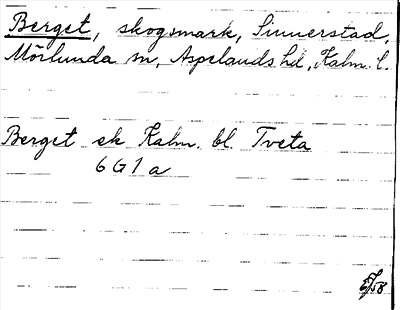 Berget, skogsmark, Sinnerstad,
Mörlunda sn, Aspelands hd, Kalm. l.
Berget ek Kalm. bl. Tveta
6G1a